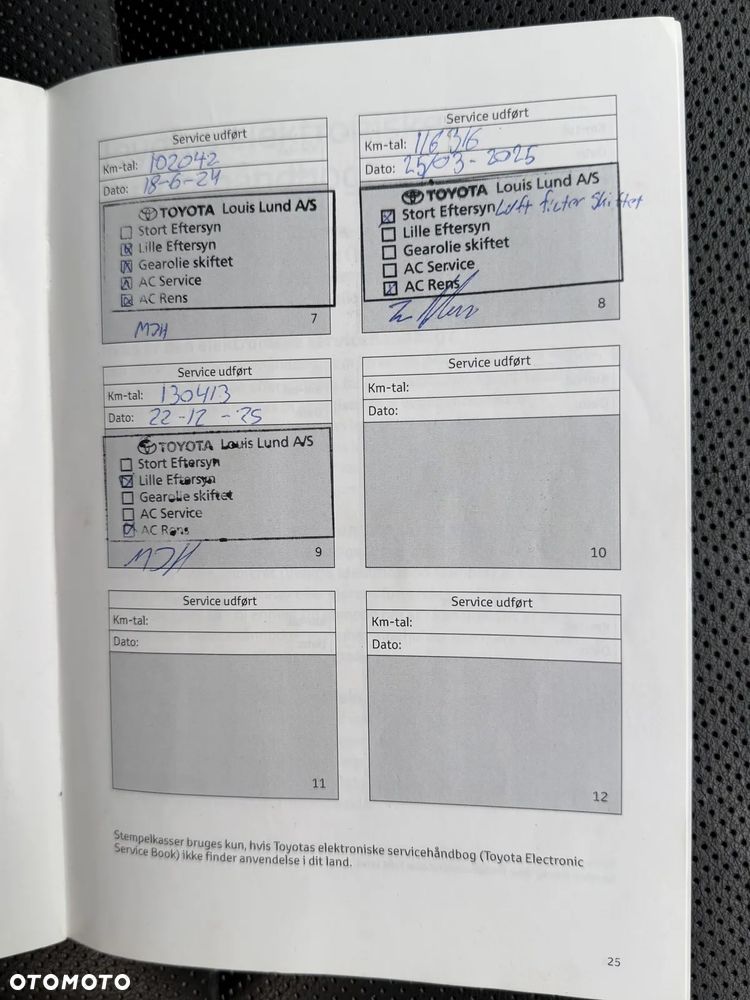 Service udført
Km-tal: 102042
Dato: 18-6-24
TOYOTA Louis Lund A/S
Stort Eftersyn
Lille Eftersyn
Gearolie skiftet
AC Service
AC Rens
7
Service udført
Km-tal: 116316
Dato: 25/03-2025
TOYOTA Louis Lund A/S
Stort Eftersyn Luft filter Skiftet
Lille Eftersyn
Gearolie skiftet
AC Service
AC Rens
8
Service udført
Km-tal: 130413
Dato: 22-12-25
TOYOTA Louis Lund A/S
Stort Eftersyn
Lille Eftersyn
Gearolie skiftet
AC Service
AC Rens
9
Service udført
Km-tal:
Dato:
10
Service udført
Km-tal:
Dato:
11
Service udført
Km-tal:
Dato:
12
Stempelkasser bruges kun, hvis Toyotas elektroniske servicehåndbog (Toyota Electronic
Service Book) ikke finder anvendelse i dit land.
25
OTOMOTO